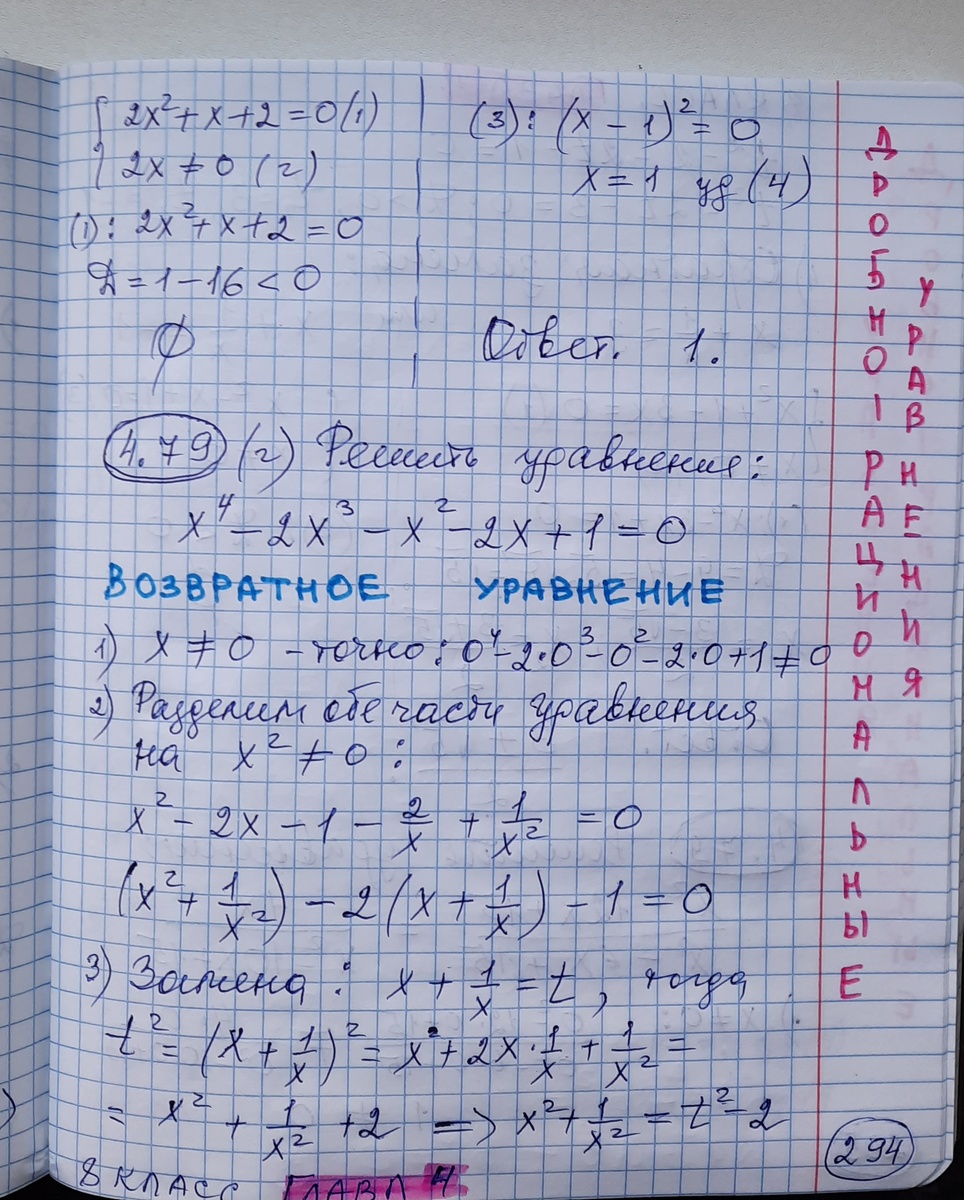 { 2x²+x+2=0 (1)
{ 2x≠0 (2)
(1): 2x²+x+2=0
Д=1-16<0
∅
(3): (x-1)²=0
x=1 уд (4)
Ответ. 1.
4.79 (г) Решить уравнения:
x⁴-2x³-x²-2x+1=0
ВОЗВРАТНОЕ УРАВНЕНИЕ
1) x≠0 - точно: 0⁴-2·0³-0²-2·0+1≠0
2) Разделим обе части уравнения
на x²≠0:
x²-2x-1-2/x+1/x²=0
(x²+1/x²)-2(x+1/x)-1=0
3) Замена: x+1/x=t, тогда
t²=(x+1/x)²=x²+2x·1/x+1/x²=
=x²+1/x²+2 => x²+1/x²=t²-2
8 КЛАСС ГЛАВА 4
294
ДРОБНО РАЦИОНАЛЬНЫЕ
УРАВНЕНИЯ